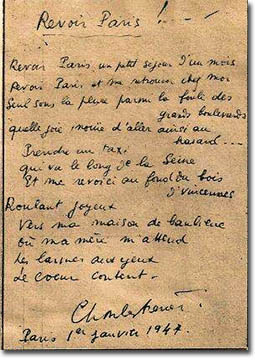 Revoir Paris !...
Revoir Paris un petit séjour d'un mois
Revoir Paris et me retrouver chez moi
Seul sous la pluie parmi la foule des
grands boulevards
quelle joie inouïe d'aller ainsi au
hasard...
Prendre un taxi
qui va le long de la Seine
Et me revoici au fond du bois
d'Vincennes
Roulant joyeux
Vers ma maison de banlieue
où ma mère m'attend
Les larmes aux yeux
Le coeur content.
Charles Trenet.
Paris 1er janvier 1947.